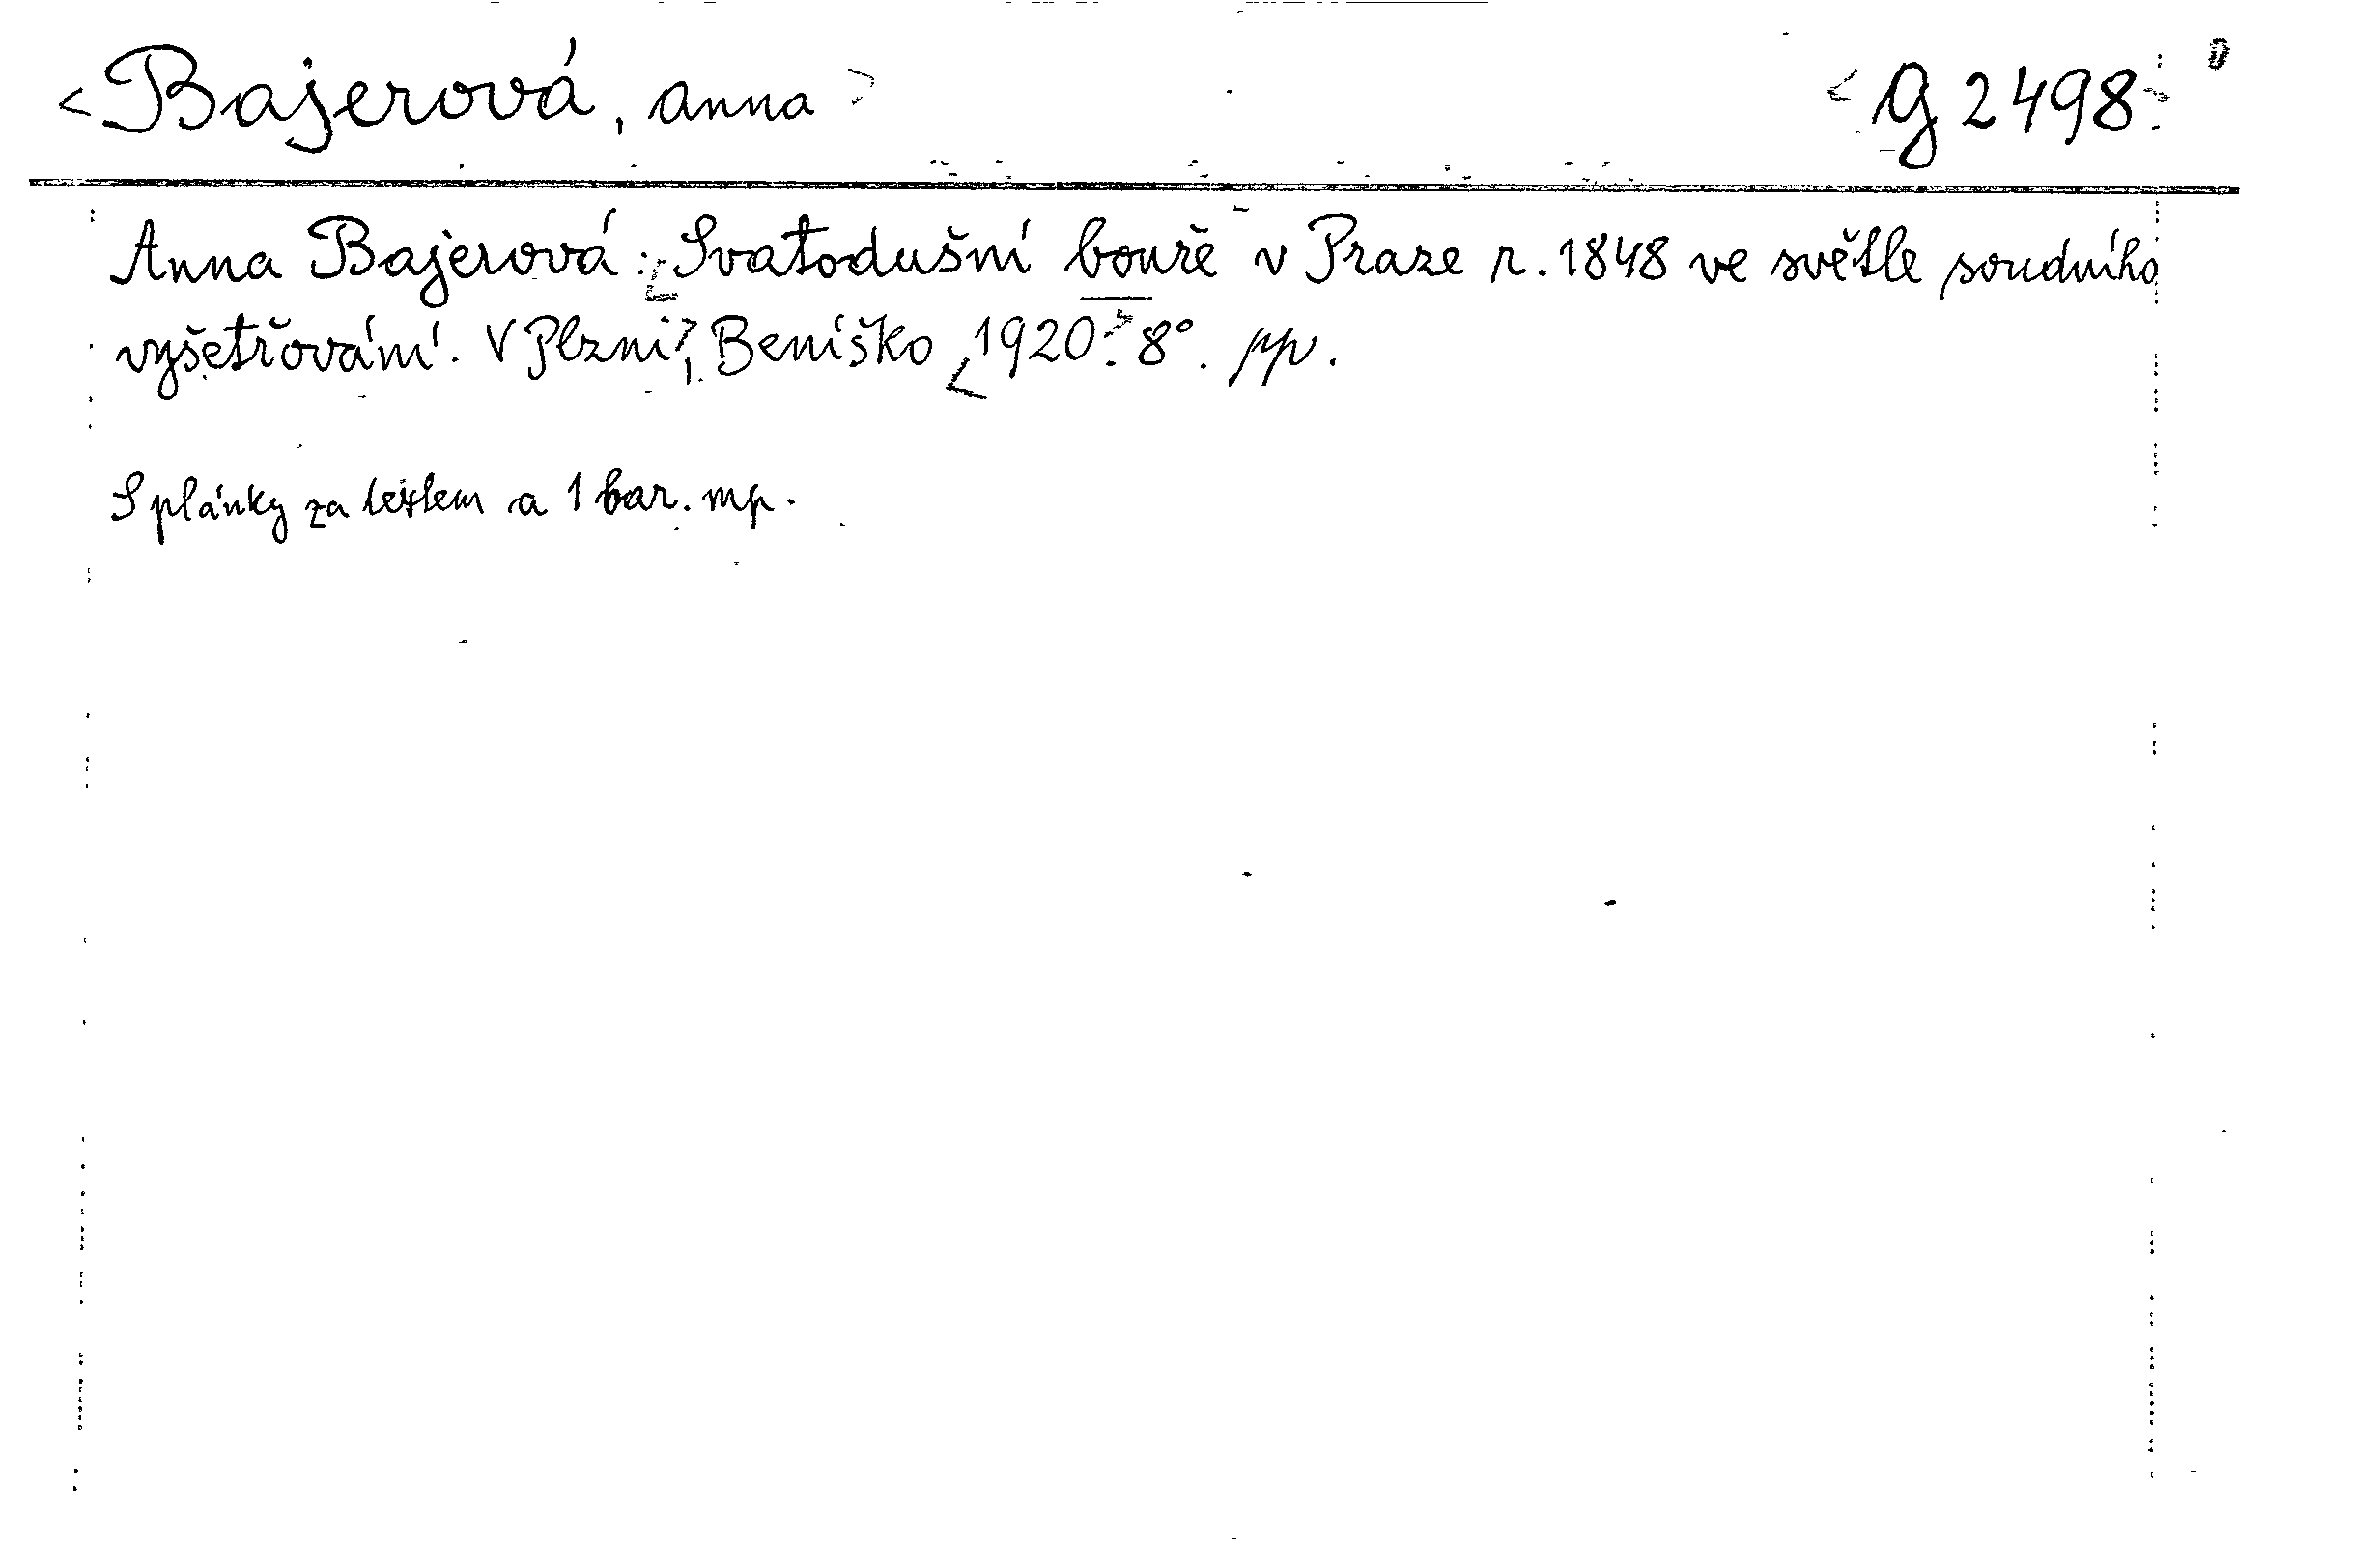 <Bajerová, Anna> <G 2498>
Anna Bajerová: <Svatodušní bouře v Praze r. 1848 ve světle soudního
vyšetřování. V Plzni>, Beníško <1920> 8°. pp.
S plánky za textem a 1 bar. mp.